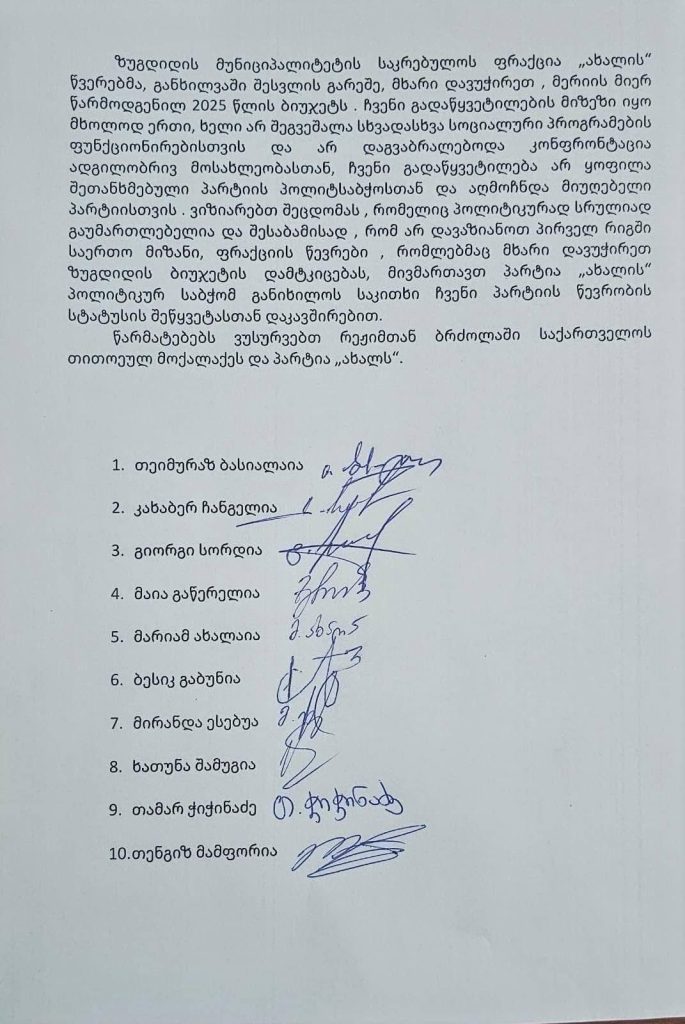 ზუგდიდის მუნიციპალიტეტის საკრებულოს ფრაქცია „ახალის“
წვერებმა, განხილვაში შესვლის გარეშე, მხარი დავუჭირეთ , მერიის მიერ
წარმოდგენილ 2025 წლის ბიუჯეტს . ჩვენი გადაწყვეტილების მიზეზი იყო
მხოლოდ ერთი, ხელი არ შეგვეშალა სხვადასხვა სოციალური პროგრამების
ფუნქციონირებისთვის და არ დაგვაბრალებოდა კონფრონტაცია
ადგილობრივ მოსახლეობასთან, ჩვენი გადაწყვეტილება არ ყოფილა
შეთანხმებული პარტიის პოლიტსაბჭოსთან და აღმოჩნდა მიუღებელი
პარტიისთვის . ვიზიარებთ შეცდომას , რომელიც პოლიტიკურად სრულიად
გაუმართლებელია და შესაბამისად , რომ არ დავაზიანოთ პირველ რიგში
საერთო მიზანი, ფრაქციის წევრები , რომლებმაც მხარი დავუჭირეთ
ზუგდიდის ბიუჯეტის დამტკიცებას, მივმართავთ პარტია „ახალის“
პოლიტიკურ საბჭომ განიხილოს საკითხი ჩვენი პარტიის წევრობის
სტატუსის შეწყვეტასთან დაკავშირებით.
წარმატებებს ვუსურვებთ რეჟიმთან ბრძოლაში საქართველოს
თითოეულ მოქალაქეს და პარტია „ახალს“.
1. თეიმურაზ ბასიალაია
2. კახაბერ ჩანგელია
3. გიორგი სორდია
4. მაია გაწერელია
5. მარიამ ახალაია
6. ბესიკ გაბუნია
7. მირანდა ესებუა
8. ხათუნა შამუგია
9. თამარ ჭიჭინაძე თ. ჭიჭინაძე
10.თენგიზ მამფორია